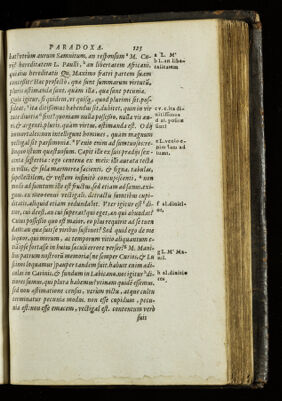 PARADOXA. 125
bat? utrum aurum Samnitum, an responsum M. Cu-
rij? hereditatem L. Paulli, an libertatem Africani,
qui eius hereditatis Q. Maximo fratri partem suam
concessit? Hæc profecto, quæ sunt summarum virtutũ,
pluris æstimanda sunt, quam illa, quæ sunt pecuniæ.
Quis igitur, si quidem, vt quisq, quod plurimi sit, pos-
sideat, ita ditissimus habendus sit, dubitet, quin in vir
tute diuitiæ sint? quoniam nulla possessio, nulla vis au-
ri, & argenti, pluris, quàm virtus, æstimanda est. O dij
immortales: non intelligunt homines, quam magnum
vectigal sit parsimonia. Venio enim ad sumtuosos: re-
linquo istum quæstuosum. Capit ille ex suis prædijs sex-
centa sestertia: ego centena ex meis: illi aurata tecta
in villis, & sola marmorea facienti, & signa, tabulas,
supellectilem, & vestem infinitè concupiscenti, non
modo ad sumtum ille est fructus, sed etiam ad fœnus, exi-
guus. ex meo tenui vectigali, detractis sumtibus cupi-
ditatis, aliquid etiam redundabit. Vter igitur est diui-
tior, cui deest, an cui superat? qui eget, an qui abundat?
Cuius possessio quo est maior, eo plus requirit ad se tuen-
dam: an quæ suis se viribus sustinet? Sed quid ego de me
loquor, qui morum, ac temporum vitio aliquantum e-
tiam ipse fortasse in huius sæculi errore verser? M. Mani-
lius patrum nostrorũ memoria, ne semper Curios, & Lu-
scinos loquamur, pauper tandem fuit. habuit enim ædi-
culas in Carinis, & fundum in Labicano. nos igitur di-
uitiores sumus, qui plura habemus? vtinam quidem essemus.
sed non æstimatione census, verùm victu, atque cultu
terminatur pecuniæ modus. non esse cupidum, pecu-
nia est: non esse emacem, vectigal est. contentum verò
suis
a L. M'
b l. an liber-
talitatem
f al. diuitior,
g L. M' Ma-
nil.
h al. ditiores